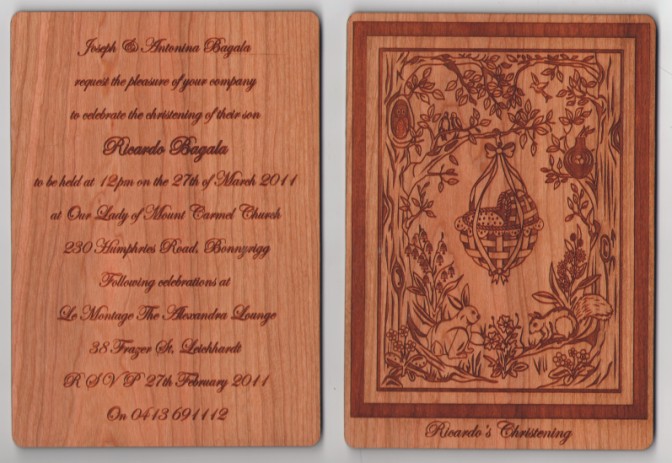 Joseph & Antonina Bagala
request the pleasure of your company
to celebrate the christening of their son
Ricardo Bagala
to be held at 12pm on the 27th of March 2011
at Our Lady of Mount Carmel Church
230 Humphries Road, Bonnzrigg
Following celebrations at
Le Montage The Alexandra Lounge
38 Frazer St, Leichhardt
R S V P 27th February 2011
On 0413 691112
Ricardo's Christening